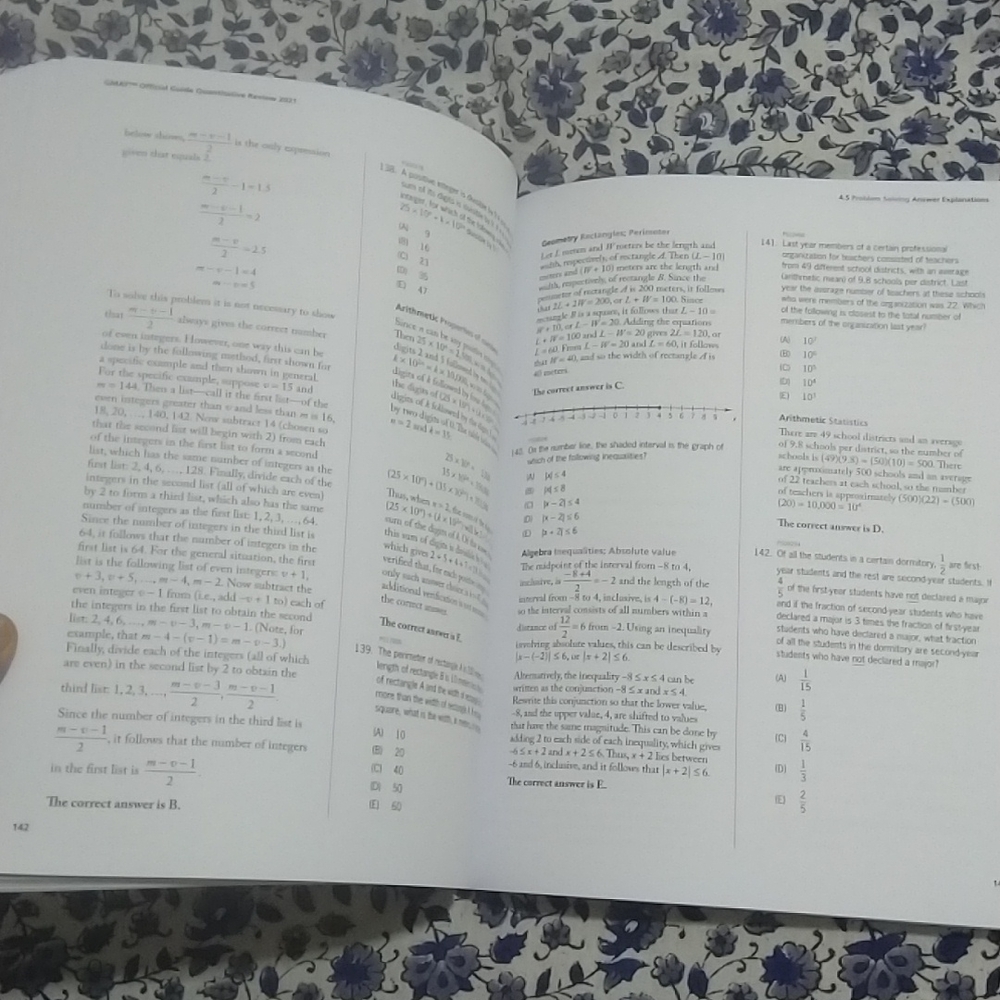 GMAT™ Official Guide Quantitative Review 2021
below shows, (m − v − 1)/2 is the only expression
given that equals 2.
(m − v)/2 − 1 = 1.5
(m − v − 1)/2 = 2
(m − v)/2 = 2.5
m − v − 1 = 4
m − v = 5
To solve this problem it is not necessary to show
that (m − v − 1)/2 always gives the correct number
of even integers. However, one way this can be
done is by the following method, first shown for
a specific example and then shown in general.
For the specific example, suppose v = 15 and
m = 144. Then a list—call it the first list—of the
even integers greater than v and less than m is 16,
18, 20, …, 140, 142. Now subtract 14 (chosen so
that the second list will begin with 2) from each
of the integers in the first list to form a second
list, which has the same number of integers as the
first list: 2, 4, 6, …, 128. Finally, divide each of the
integers in the second list (all of which are even)
by 2 to form a third list, which also has the same
number of integers as the first list: 1, 2, 3, …, 64.
Since the number of integers in the third list is
64, it follows that the number of integers in the
first list is 64. For the general situation, the first
list is the following list of even integers: v + 1,
v + 3, v + 5, …, m − 4, m − 2. Now subtract the
even integer v − 1 from (i.e., add −v + 1 to) each of
the integers in the first list to obtain the second
list: 2, 4, 6, …, m − v − 3, m − v − 1. (Note, for
example, that m − 4 − (v − 1) = m − v − 3.)
Finally, divide each of the integers (all of which
are even) in the second list by 2 to obtain the
third list: 1, 2, 3, …, (m − v − 3)/2, (m − v − 1)/2.
Since the number of integers in the third list is
(m − v − 1)/2, it follows that the number of integers
in the first list is (m − v − 1)/2.
The correct answer is B.
142
138. A positive integer is divisible by
sum of its digits is divisible by
integer, for which of the following
(A) 9
(B) 16
(C) 23
(D) 35
(E) 47
Arithmetic Properties of
Since
Then
digits 2 and 5 followed by
digits of k followed by
the digits of
digits of k followed by the
by two digits of 0. The table
n = 2 and k = 35.
Thus, when n = 2, the sum of the
sum of the digits of k. Of the
this sum of digits is divisible by
which gives 2 + 5 + 4 + 7 =
verified that, for each positive
only such answer choice is
additional verification is not
the correct answer.
The correct answer is E.
139. The perimeter of rectangle A is 200
length of rectangle B is 10 meters
of rectangle A and the width of rectangle
more than the width of rectangle A.
square, what is the width, in meters,
(A) 10
(B) 20
(C) 40
(D) 50
(E) 60
4.5 Problem Solving Answer Explanations
Geometry Rectangles; Perimeter
Let L meters and W meters be the length and
width, respectively, of rectangle A. Then (L − 10)
meters and (W + 10) meters are the length and
width, respectively, of rectangle B. Since the
perimeter of rectangle A is 200 meters, it follows
that 2L + 2W = 200, or L + W = 100. Since
rectangle B is a square, it follows that L − 10 =
W + 10, or L − W = 20. Adding the equations
L + W = 100 and L − W = 20 gives 2L = 120, or
L = 60. From L − W = 20 and L = 60, it follows
that W = 40, and so the width of rectangle A is
40 meters.
The correct answer is C.
−8 −7 −6 −5 −4 −3 −2 −1 0 1 2 3 4 5 6 7 8 9
140. On the number line, the shaded interval is the graph of
which of the following inequalities?
(A) |x| ≤ 4
(B) |x| ≤ 8
(C) |x − 2| ≤ 4
(D) |x − 2| ≤ 6
(E) |x + 2| ≤ 6
Algebra Inequalities; Absolute value
The midpoint of the interval from −8 to 4,
inclusive, is (−8 + 4)/2 = −2 and the length of the
interval from −8 to 4, inclusive, is 4 − (−8) = 12,
so the interval consists of all numbers within a
distance of 12/2 = 6 from −2. Using an inequality
involving absolute values, this can be described by
|x − (−2)| ≤ 6, or |x + 2| ≤ 6.
Alternatively, the inequality −8 ≤ x ≤ 4 can be
written as the conjunction −8 ≤ x and x ≤ 4.
Rewrite this conjunction so that the lower value,
−8, and the upper value, 4, are shifted to values
that have the same magnitude. This can be done by
adding 2 to each side of each inequality, which gives
−6 ≤ x + 2 and x + 2 ≤ 6. Thus, x + 2 lies between
−6 and 6, inclusive, and it follows that |x + 2| ≤ 6.
The correct answer is E.
141. Last year members of a certain professional
organization for teachers consisted of teachers
from 49 different school districts, with an average
(arithmetic mean) of 9.8 schools per district. Last
year the average number of teachers at these schools
who were members of the organization was 22. Which
of the following is closest to the total number of
members of the organization last year?
(A) 10⁷
(B) 10⁶
(C) 10⁵
(D) 10⁴
(E) 10³
Arithmetic Statistics
There are 49 school districts and an average
of 9.8 schools per district, so the number of
schools is (49)(9.8) ≈ (50)(10) = 500. There
are approximately 500 schools and an average
of 22 teachers at each school, so the number
of teachers is approximately (500)(22) ≈ (500)
(20) = 10,000 = 10⁴.
The correct answer is D.
142. Of all the students in a certain dormitory, 1/2 are first-
year students and the rest are second-year students. If
4/5 of the first-year students have not declared a major
and if the fraction of second-year students who have
declared a major is 3 times the fraction of first-year
students who have declared a major, what fraction
of all the students in the dormitory are second-year
students who have not declared a major?
(A) 1/15
(B) 1/5
(C) 4/15
(D) 1/3
(E) 2/5